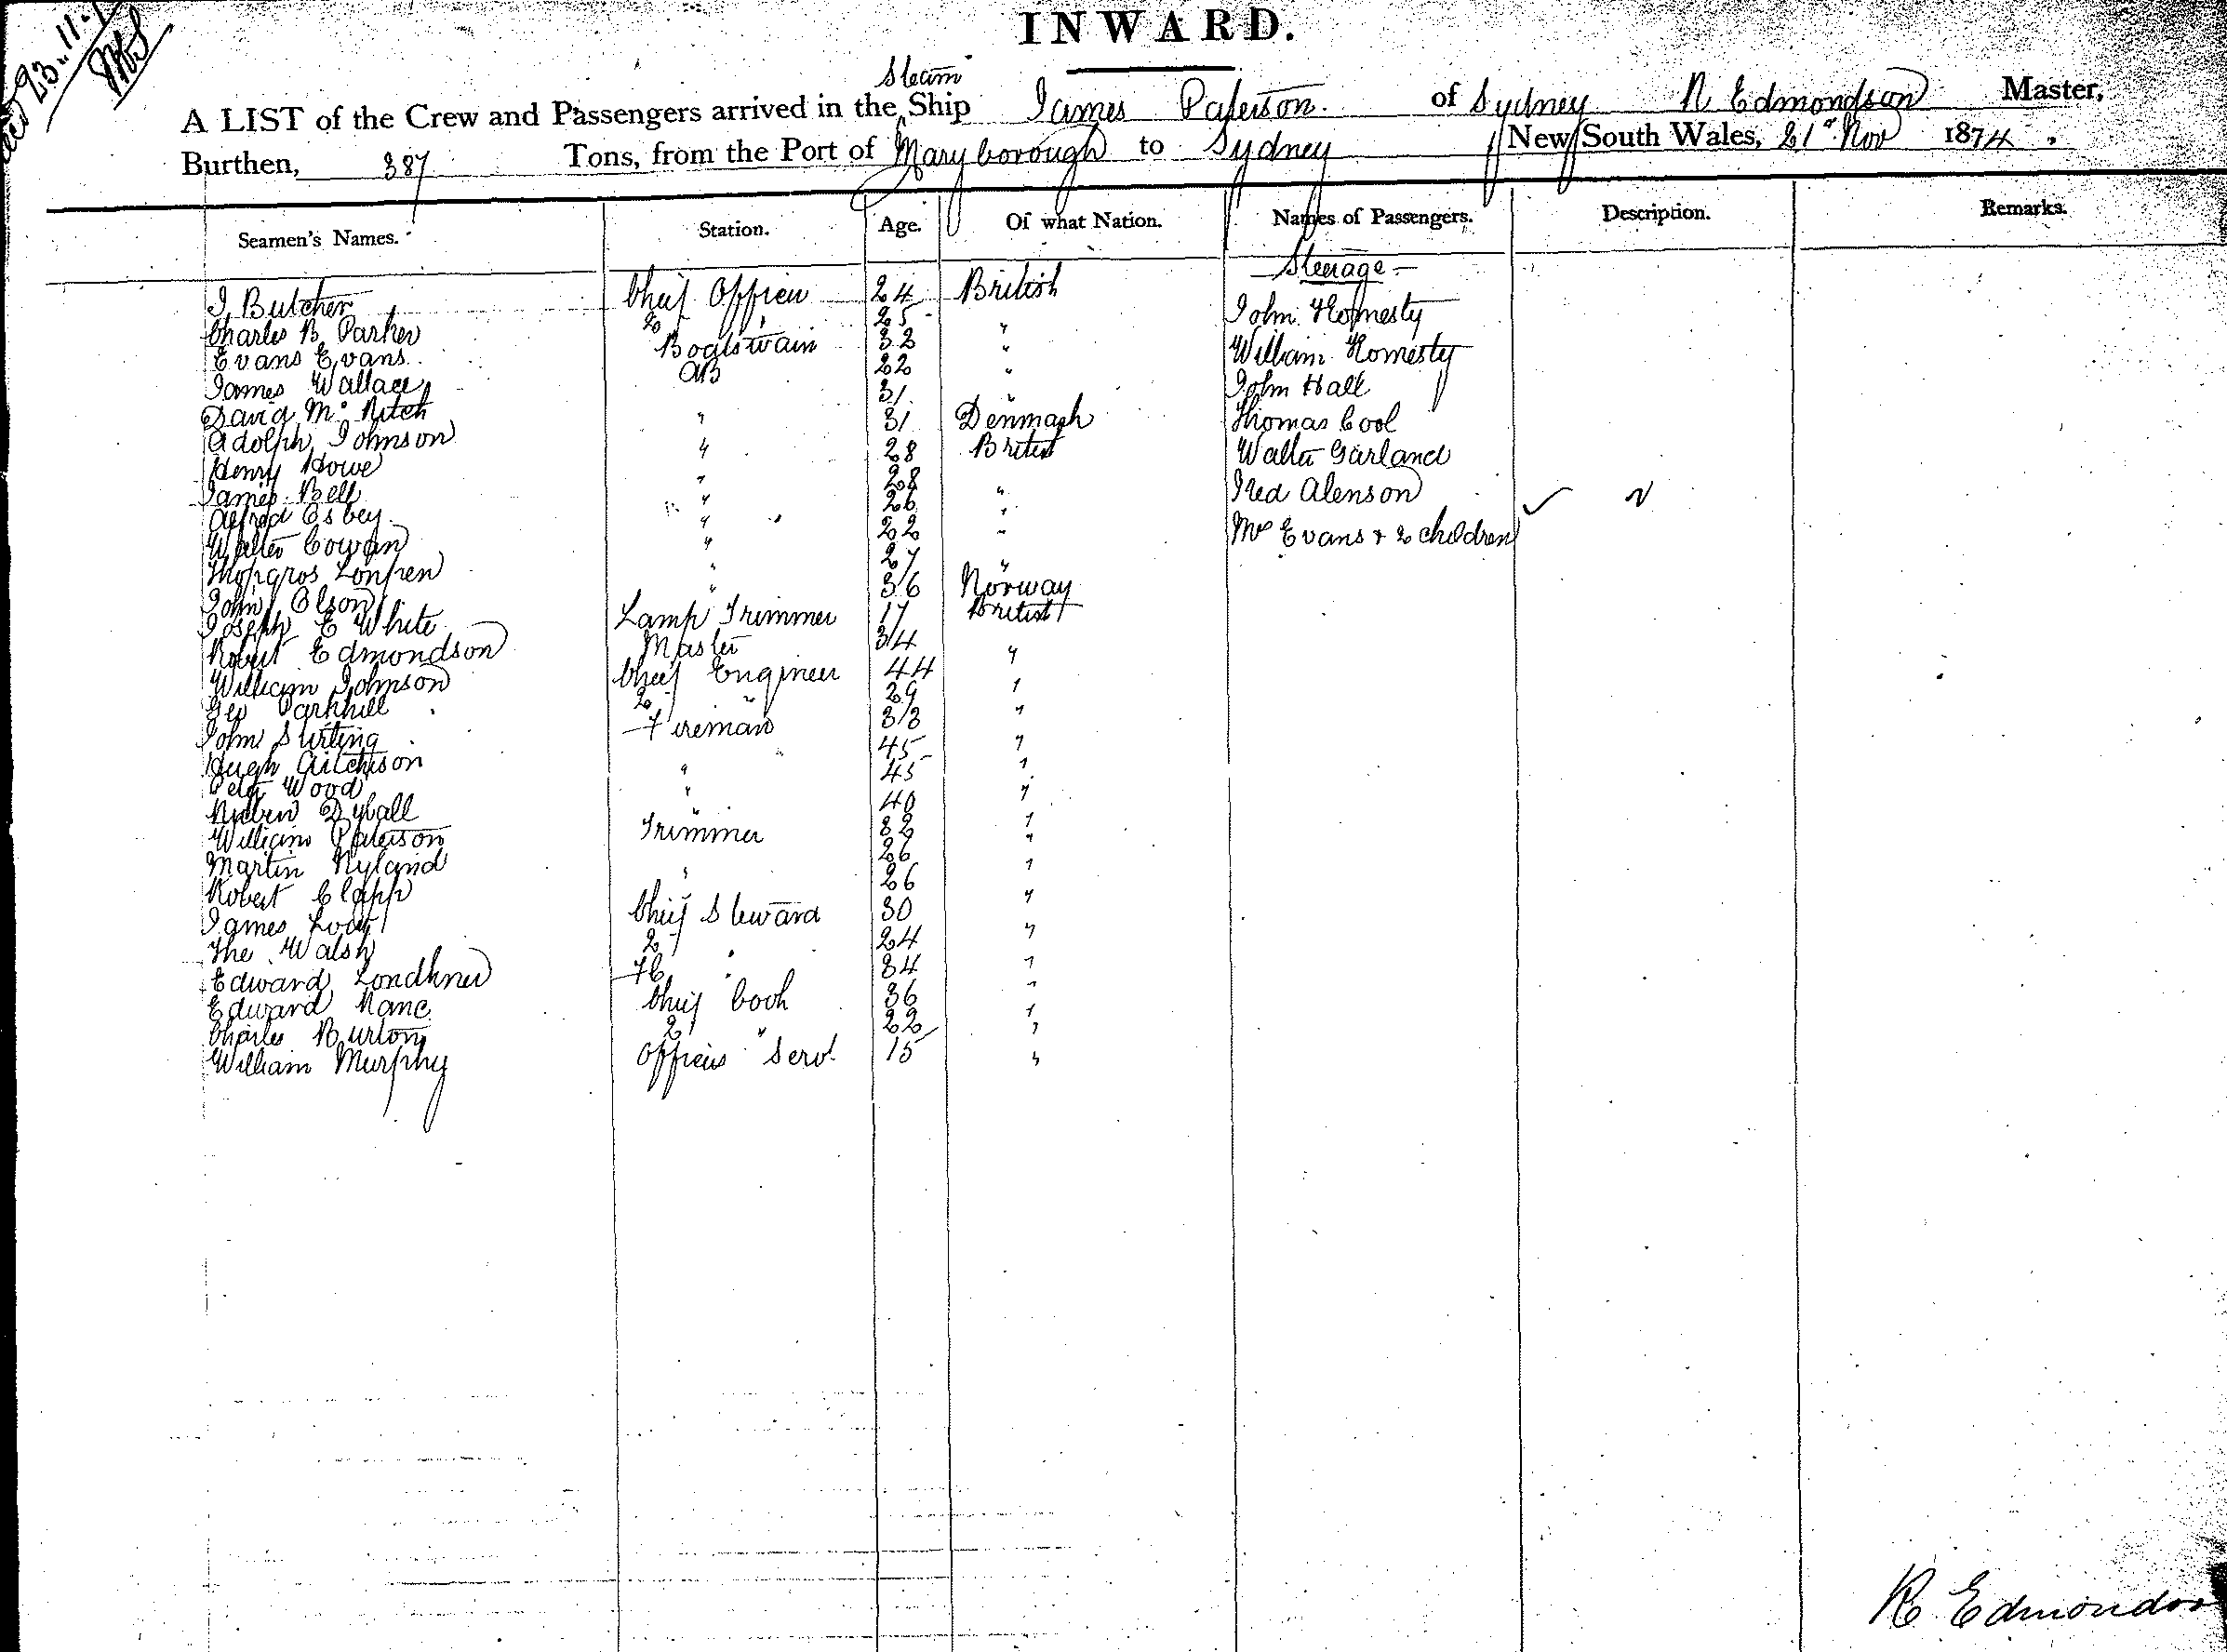 23.11.
INWARD.
Steam
A LIST of the Crew and Passengers arrived in the Ship James Paterson. of Sydney R Edmondson Master,
Burthen, 387 Tons, from the Port of Maryborough to Sydney New South Wales, 21st Nov 1874.
Seamen's Names. Station. Age. Of what Nation. Names of Passengers. Description. Remarks.
Steerage
J. Butcher Chief Officer 24 British John Homesty
Charles B. Parker 2 " 25 "
Evans Evans Boatswain 32 " William Homesty
James Wallace AB 22 "
David Mc Nitch " 31 " John Hall
Adolph Johnson " 31 Denmark Thomas Cool
Henry Howe " 28 British Walter Garland
James Bell " 28 " Fred Alenson
Alfred Esbey " 26 "
Walter Cowan " 22 " Mrs Evans & 2 children
27 "
John Olson " 36 Norway
Joseph E White Lamp Trimmer 17 British
Robert Edmondson Master 34 "
William Johnson Chief Engineer 44 "
Geo Parkhill 2 " 29 "
John Stirling Fireman 33 "
Hugh Aitchison " 45 "
Peter Wood " 45 "
Dyball " 40 "
William Paterson Trimmer 32 "
Martin Ryland " 26 "
Robert Clapp " 26 "
James Chief Steward 30 "
Tho Walsh 2 " 24 "
Edward " 34 "
Edward Nanc Chief Cook 36 "
Charles Burton 2 " 22 "
William Murphy Officers Servt 15 "
R Edmondson